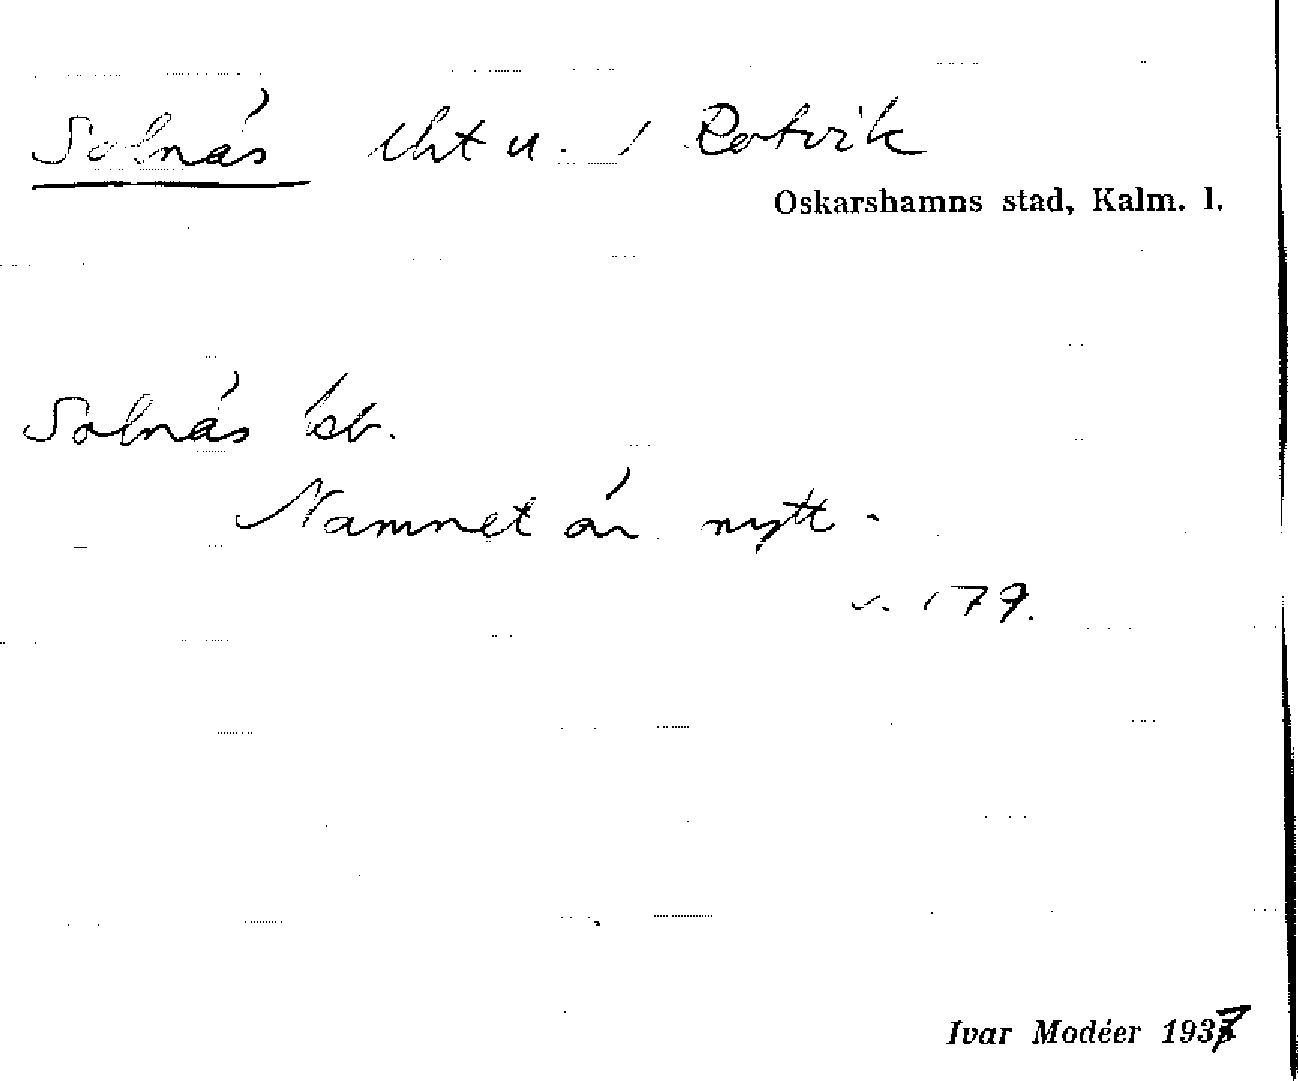 Solnäs lht u. / Rotvik
Oskarshamns stad, Kalm. l.
Solnäs kb.
Namnet är nytt.
s. 177.
Ivar Modéer 1937